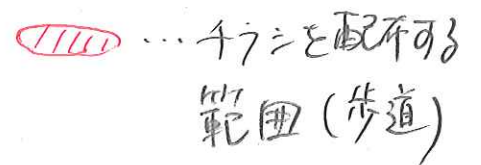 …チラシを配布する
範囲(歩道)